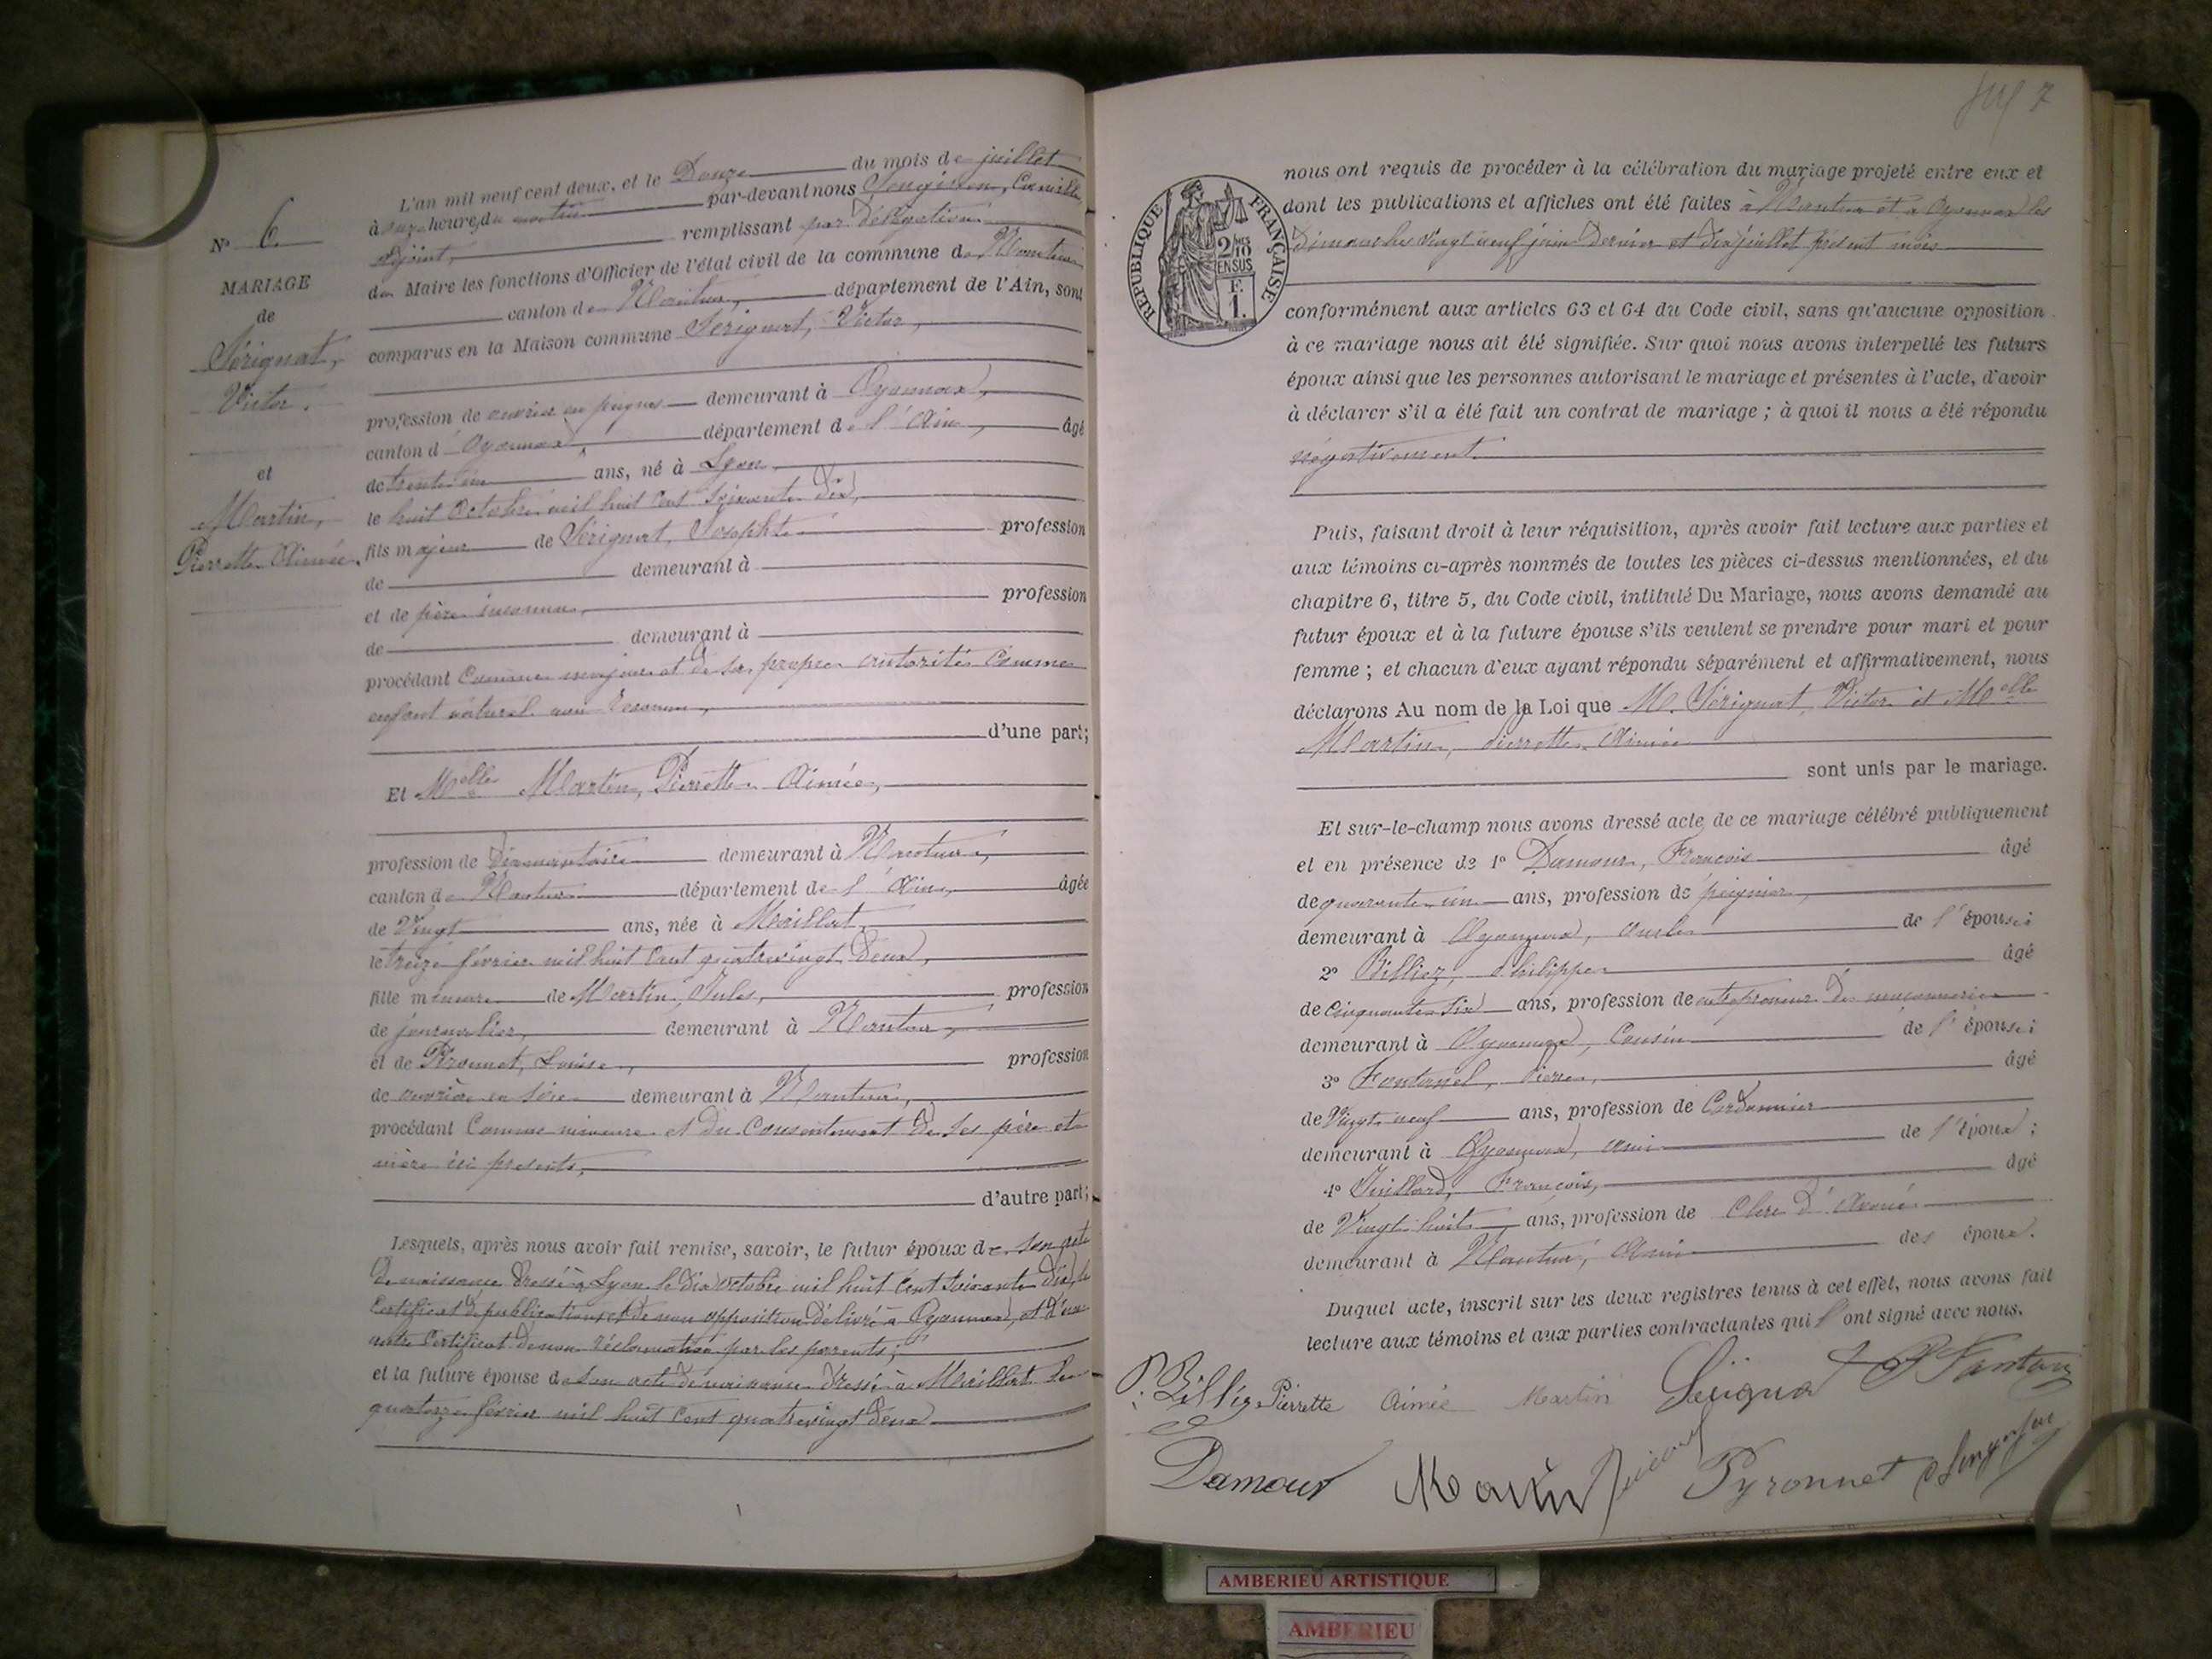 N° 6
MARIAGE
de
Sérignat,
Victor.
et
Martin,
Pierrette Aimée.
L'an mil neuf cent deux, et le Douze du mois de juillet
à onze heure du matin par-devant nous Camille,
adjoint, remplissant par délégation
du Maire les fonctions d'Officier de l'état civil de la commune de Nantua
canton de Nantua, département de l'Ain, sont
comparus en la Maison commune Sérignat, Victor,
profession de ouvrier en peignes demeurant à Oyonnax,
canton d'Oyonnax, département de l'Ain, âgé
de trente un ans, né à Lyon
le huit Octobre mil huit cent soixante dix,
fils majeur de Sérignat, Josephte profession
de demeurant à
et de père inconnu, profession
de demeurant à
procédant Comme majeur et de sa propre autorité Comme
enfant naturel non reconnu,
d'une part;
Et Melle Martin, Pierrette Aimée,
profession de diamantaire demeurant à Nantua,
canton de Nantua département de l'Ain, âgée
de Vingt ans, née à Maillat,
le treize février mil huit cent quatrevingt deux,
fille mineure de Martin, Jules, profession
de journalier, demeurant à Nantua,
et de Pironnet, Louise, profession
de ouvrière en soie demeurant à Nantua,
procédant Comme mineure et du Consentement de ses père et
mère ici présents,
d'autre part;
Lesquels, après nous avoir fait remise, savoir, le futur époux de son acte
de naissance dressé à Lyon le dix octobre mil huit cent soixante dix, le
Certificat de publications et de non opposition délivré à Oyonnax, et d'un
autre Certificat de non réclamation par les parents;
et la future épouse de son acte de naissance dressé à Maillat le
quatorze février mil huit cent quatrevingt deux
7
REPUBLIQUE FRANÇAISE
2/10 EN SUS
F. 1.
nous ont requis de procéder à la célébration du mariage projeté entre eux et
dont les publications et affiches ont été faites à Nantua et à Oyonnax les
dimanches vingt neuf juin dernier et dix juillet présent mois
conformément aux articles 63 et 64 du Code civil, sans qu'aucune opposition
à ce mariage nous ait été signifiée. Sur quoi nous avons interpellé les futurs
époux ainsi que les personnes autorisant le mariage et présentes à l'acte, d'avoir
à déclarer s'il a été fait un contrat de mariage ; à quoi il nous a été répondu
négativement.
Puis, faisant droit à leur réquisition, après avoir fait lecture aux parties et
aux témoins ci-après nommés de toutes les pièces ci-dessus mentionnées, et du
chapitre 6, titre 5, du Code civil, intitulé Du Mariage, nous avons demandé au
futur époux et à la future épouse s'ils veulent se prendre pour mari et pour
femme ; et chacun d'eux ayant répondu séparément et affirmativement, nous
déclarons Au nom de la Loi que M. Sérignat, Victor et Melle
Martin, Pierrette Aimée
sont unis par le mariage.
Et sur-le-champ nous avons dressé acte de ce mariage célébré publiquement
et en présence de 1° Damour, François âgé
de quarante-un ans, profession de peignier,
demeurant à Oyonnax, oncle de l'épouse;
2° Billiez, Philippe âgé
de cinquante six ans, profession de entrepreneur de maçonnerie
demeurant à Oyonnax, Cousin de l'épouse;
3° Fontanel, Pierre, âgé
de Vingt neuf ans, profession de Cordonnier
demeurant à Oyonnax, ami de l'époux;
4° Juillard, François, âgé
de Vingt huit ans, profession de Clerc d'Avoué
demeurant à Nantua, Ami des époux.
Duquel acte, inscrit sur les deux registres tenus à cet effet, nous avons fait
lecture aux témoins et aux parties contractantes qui l'ont signé avec nous.
P. Billiez Pierrette Aimée Martin Sérignat
Damour Martin Pyronnet
AMBERIEU ARTISTIQUE
AMBERIEU